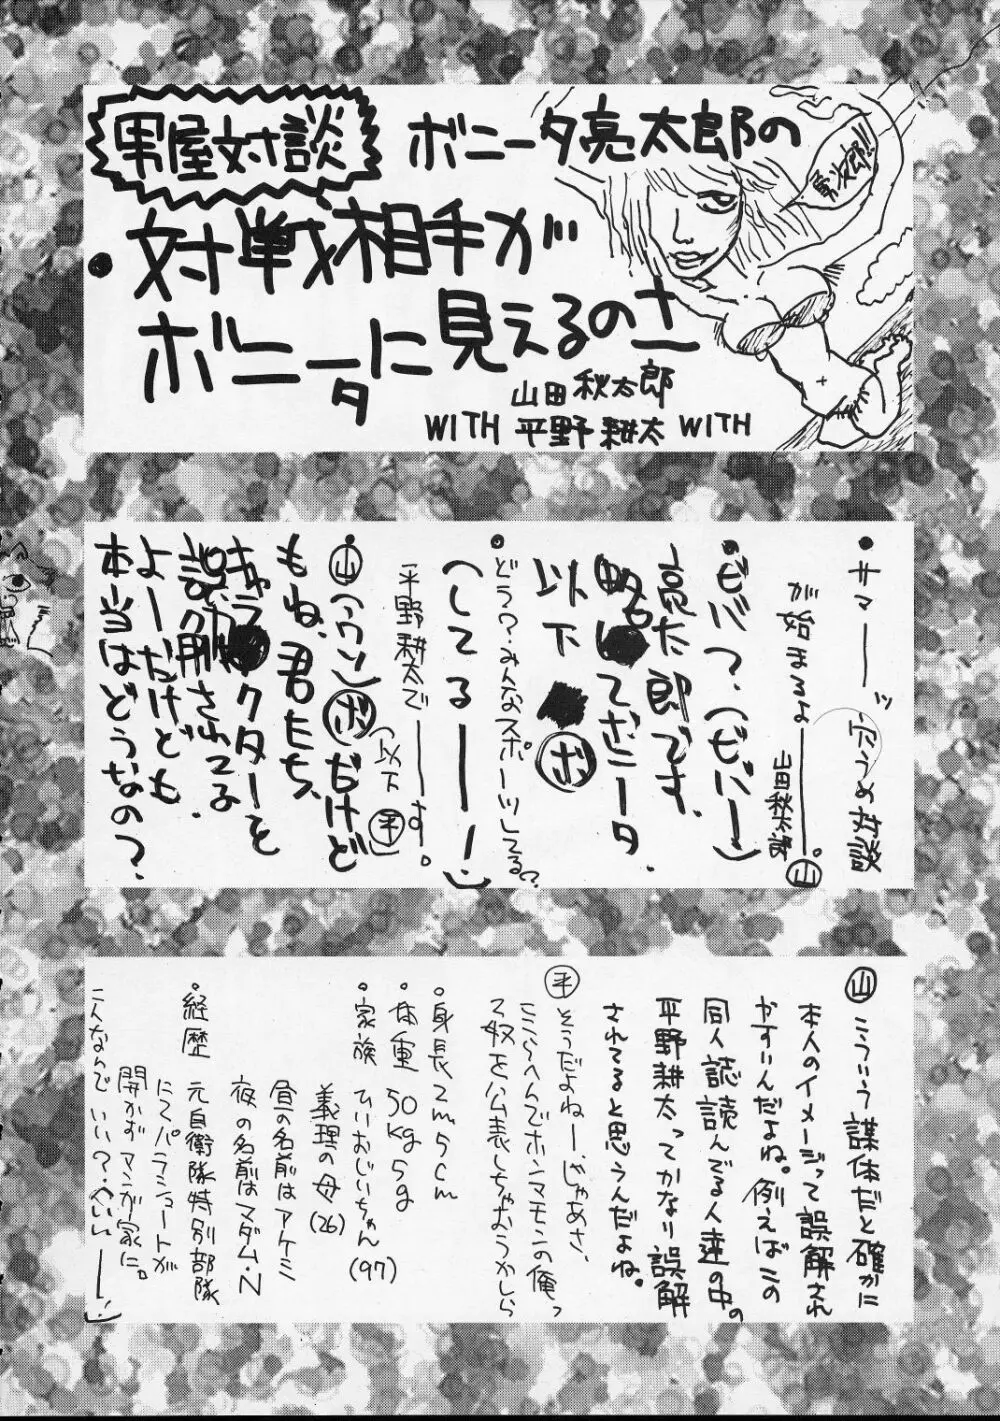 男屋対談
ボニータ亮太郎の
・対戦相手が
ボニータに見えるのさー
寅次郎!!
山田秋太郎
WITH 平野耕太 WITH
・サマーーッ 穴うめ対談
が始まるよ———。㊤
山田秋太郎
・ビバ?(ビバー)
亮太郎です。
略してボニータ。
以下 ボ
・どう?みんなスポーツしてる?
(してるーーー!)
平野耕太でーーす。
(以下 平)
山(ウン)ボだけど
もね、君たち、
キャラクターを
誤解されてる
よーだけども
本当はどうなの?
山 こういう媒体だと確かに
本人のイメージって誤解され
やすいんだよね。例えばこの
同人誌読んでる人達の中の
平野耕太ってかなり誤解
されてると思うんだよね。
平 そうだよねー、じゃあさ、
ここらへんでホンマモンの俺っ
て奴を公表しちゃおうかしら
・身長2m5cm
・体重 50kg5g
・家族 ひいおじいちゃん(97)
義理の母(26)
昼の名前はアケミ
夜の名前はマダム・N
・経歴 元自衛隊特別部隊
にてパラシュートが
開かずマンガ家に。
こんなんでいい?(いいーー!)